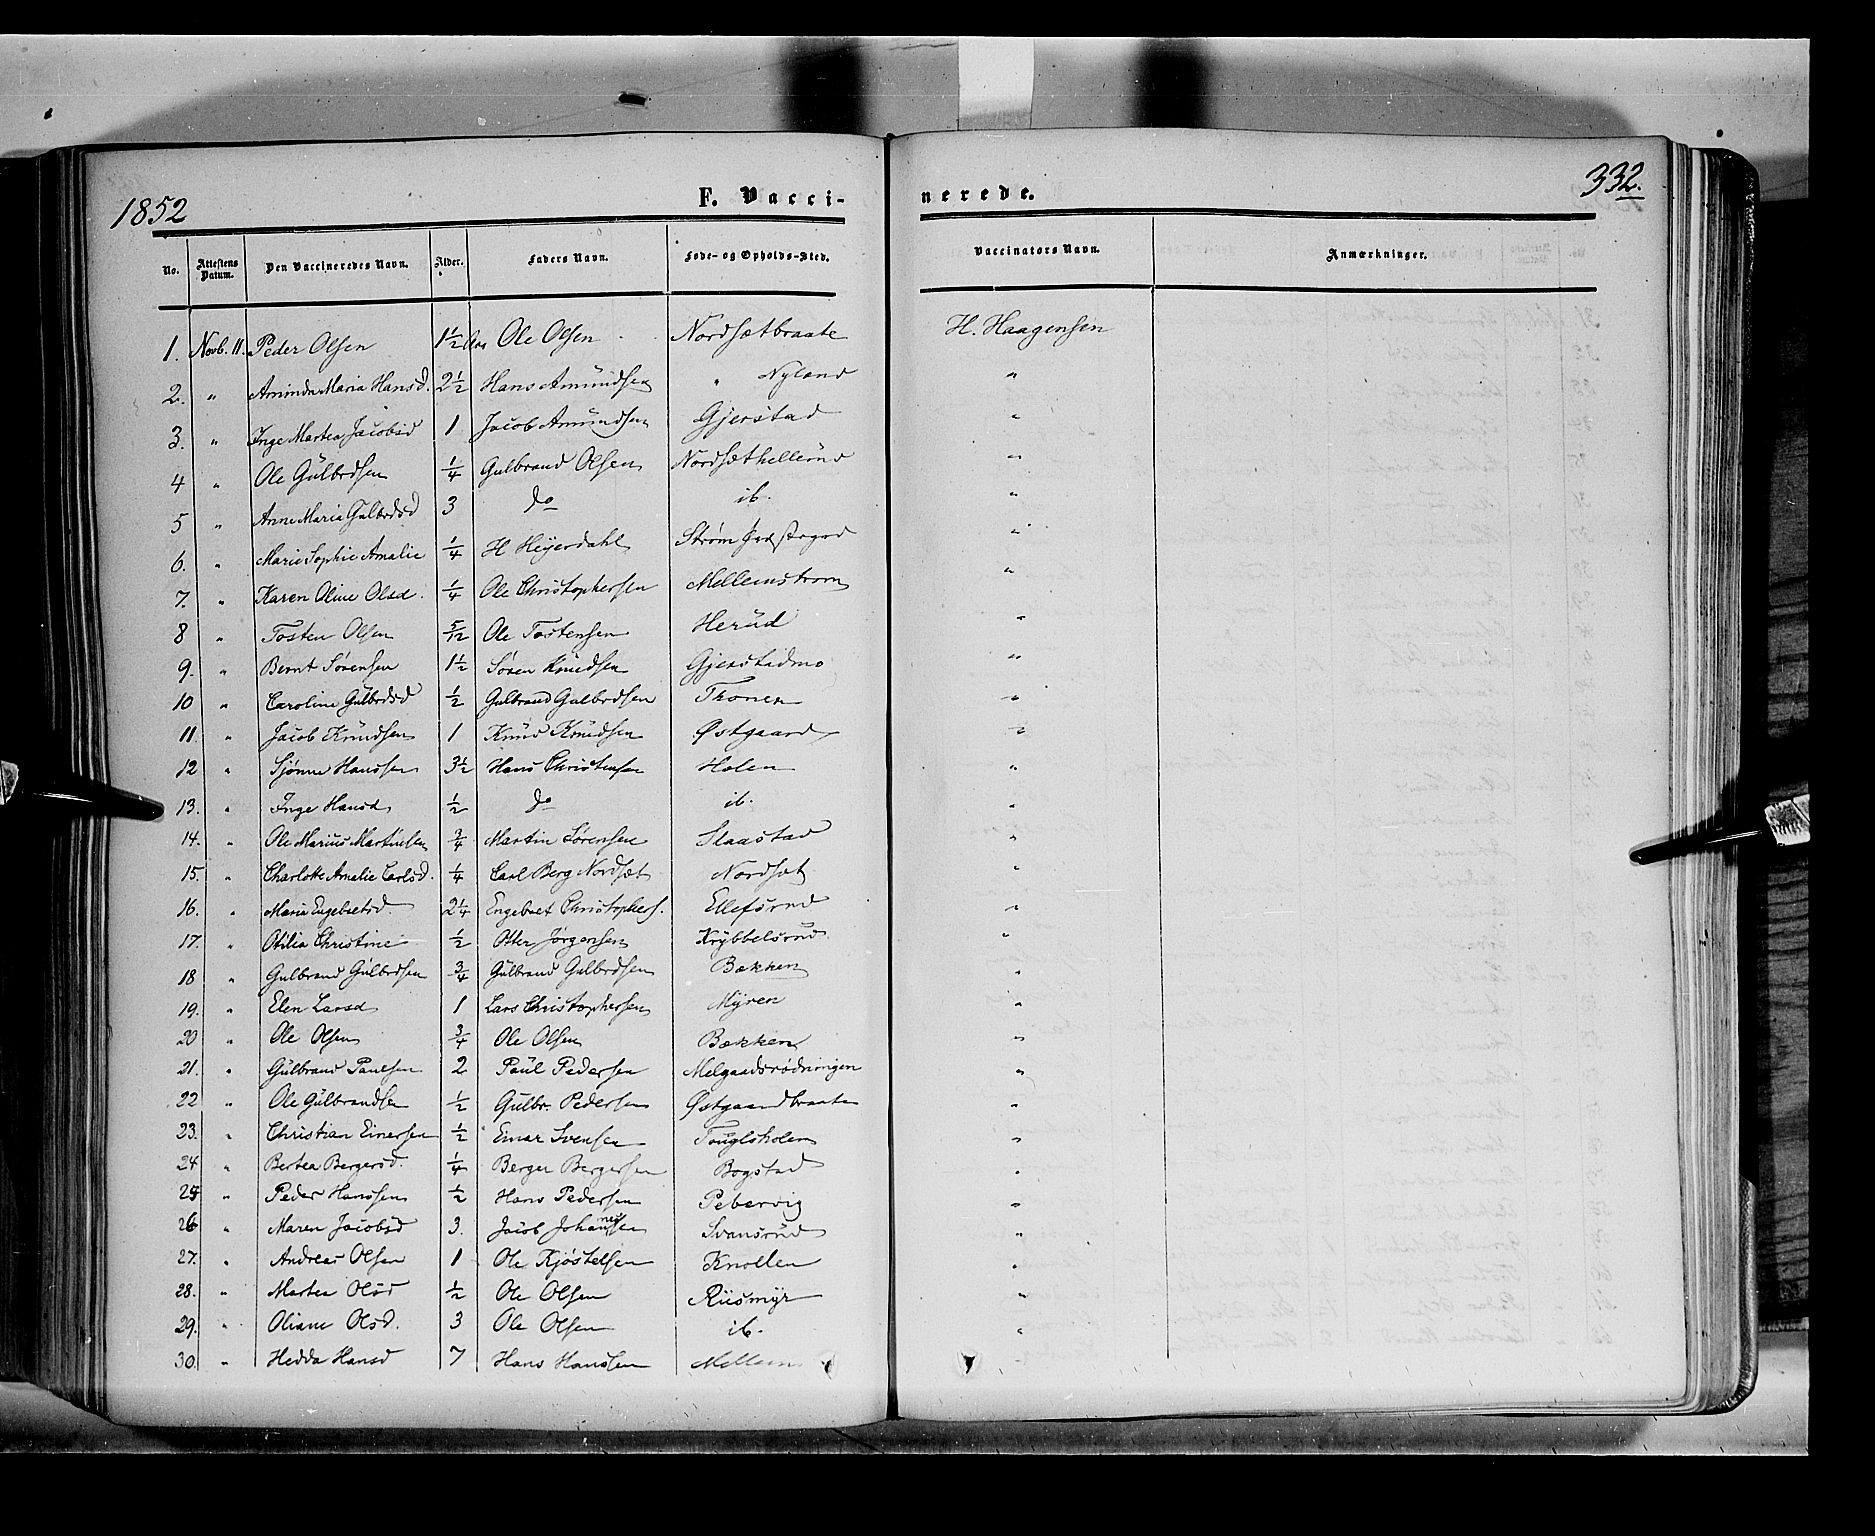 1852 F. Vacci- nerede. 332.
No. Attestens Datum. Den Vaccineredes Navn. Alder. Faders Navn. Føde- og Opholds-Sted. Vaccinators Navn. Anmærkninger.
1. Novb. 11. Peder Olsen 1½ Aar Ole Olsen Nordsætbraate H. Haagensen
2. " Aminda Maria Hansd. 2½ Hans Amundsen " Nyland "
3. " Inge Martea Jacobsd 1 Jacob Amundsen Gjerstad "
4 " Ole Gulbrdsen ¼ Gulbrand Olsen Nordsæthellerud "
5 " Anne Maria Gulbrdsd 3 do ib. "
6. " Marie Sophie Amalie ¼ H Heyerdahl Strøm Præstegrd "
7. " Karen Oline Olsd. ¼ Ole Christophersen Mellemstrøm "
8 " Tosten Olsen 5/12 Ole Tostensen Herud "
9. " Bernt Sørensen 1½ Søren Knudsen Gjerstadmo "
10 " Caroline Gulbrdsd ½ Gulbrand Gulbrdsen Thonen "
11. " Jacob Knudsen 1 Knud Knudsen Østgaard "
12 " Sjønne Hanssen 3½ Hans Christensen Holen "
13. " Inge Hansd ½ do ib. "
14. " Ole Marius Martinsen ¾ Martin Sørensen Slaastad "
15. " Charlotte Amalie Carlsd. ¼ Carl Berg Nordsæt Nordsæt "
16. " Maria Engebretsd. 2¼ Engebret Christophers. Ellefsrud "
17. " Otilia Christine ½ Otter Jørgensen Krybbelsrud "
18 " Gulbrand Gulbrdsen ¾ Gulbrand Gulbrdsen Bækken "
19. " Elen Larsd 1 Lars Christophersen Myren "
20 " Ole Olsen ¾ Ole Olsen Bækken "
21. " Gulbrand Paulsen 2 Paul Pedersen Melgaardsrødningen "
22 " Ole Gulbrandsen ½ Gulbr. Pedersen Østgaardbraate "
23. " Christian Einersen ½ Einar Svensen "
24 " Bertea Bergersd. ¼ Berger Bergersen Bogstad "
25 " Peder Hanssen ½ Hans Pedersen Pebervig "
26 " Maren Jacobsd 3. Jacob Johannessen Svansrud "
27. " Andreas Olsen 1 Ole Kjøstelsen Knollen "
28. " Martea Olsd ½ Ole Olsen Riismyr "
29. " Oliane Olsd. 3 Ole Olsen ib. "
30. " Hedda Hansd 7 Hans Hanssen